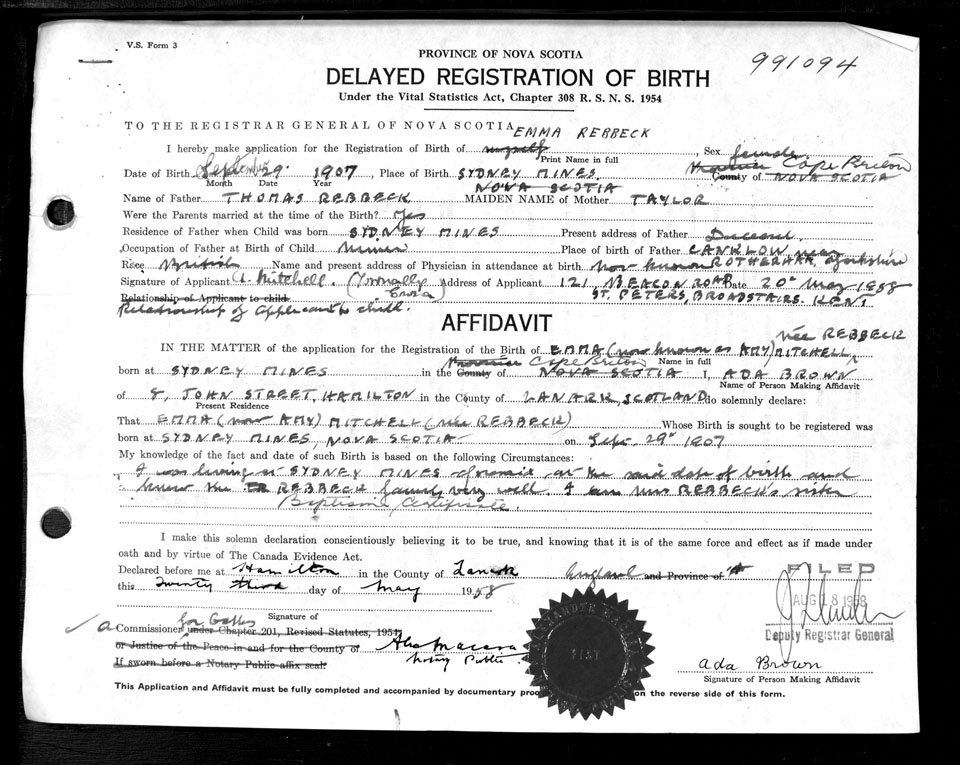 V.S. Form 3
991094
PROVINCE OF NOVA SCOTIA
DELAYED REGISTRATION OF BIRTH
Under the Vital Statistics Act, Chapter 308 R. S. N. S. 1954
TO THE REGISTRAR GENERAL OF NOVA SCOTIA
EMMA REBBECK
I hereby make application for the Registration of Birth of myself, Sex female
Print Name in full
Cape Breton
Date of Birth September 29 1907, Place of Birth SYDNEY MINES, County of NOVA SCOTIA
Month Date Year NOVA SCOTIA
Name of Father THOMAS REBBECK MAIDEN NAME of Mother TAYLOR
Were the Parents married at the time of the Birth? Yes
Residence of Father when Child was born SYDNEY MINES Present address of Father Deceased
Occupation of Father at Birth of Child Miner Place of birth of Father CANKLOW near
Race British Name and present address of Physician in attendance at birth Not known ROTHERHAM, Yorkshire
Signature of Applicant A. Mitchell. Address of Applicant 121, BEACON ROAD Date 20th May 1958
Relationship of Applicant to child ST. PETERS, BROADSTAIRS. KENT.
Relationship of applicant to child.
AFFIDAVIT
née REBBECK
IN THE MATTER of the application for the Registration of the Birth of EMMA (now known as AMY) MITCHELL
Province Cape Breton Name in full
born at SYDNEY MINES in the County of NOVA SCOTIA I, ADA BROWN
Name of Person Making Affidavit
of 8, JOHN STREET, HAMILTON in the County of LANARK, SCOTLAND do solemnly declare:
Present Residence
That EMMA (now AMY) MITCHELL (née REBBECK) Whose Birth is sought to be registered was
born at SYDNEY MINES, NOVA SCOTIA on Sept. 29th 1907
My knowledge of the fact and date of such Birth is based on the following Circumstances:
I was living at SYDNEY MINES aforesaid at the said date of birth and
knew the REBBECK family very well. I am Mrs REBBECK's sister
Baptismal Certificate.
I make this solemn declaration conscientiously believing it to be true, and knowing that it is of the same force and effect as if made under
oath and by virtue of The Canada Evidence Act.
Declared before me at Hamilton in the County of Lanark England and Province of
this Twenty third day of May 1958
FILED
AUG 18 1958
Deputy Registrar General
Signature of
a Commissioner under Chapter 201, Revised Statutes, 1954,
or Justice of the Peace in and for the County of
Notary Public
If sworn before a Notary Public affix seal
Ada Brown
Signature of Person Making Affidavit
This Application and Affidavit must be fully completed and accompanied by documentary proo on the reverse side of this form.